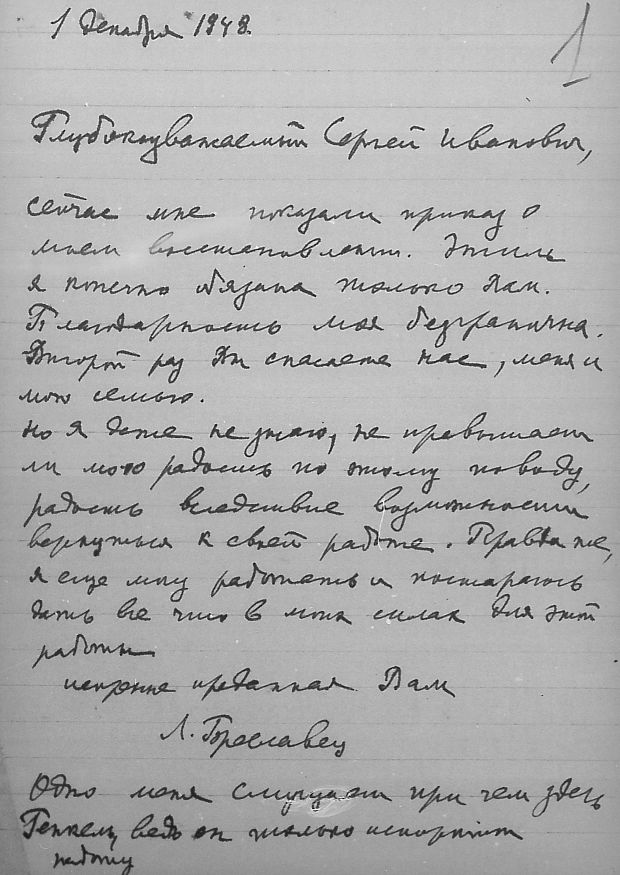 1 декабря 1948.
1
Глубокоуважаемый Сергей Иванович,
сейчас мне показали приказ о
моем восстановлении. Этим
я конечно обязана только Вам.
Благодарность моя безгранична.
Второй раз Вы спасаете нас, меня и
мою семью.
Но я даже не знаю, не превышает
ли мою радость по этому поводу,
радость вследствие возможности
вернуться к своей работе. Правда же,
я еще могу работать и постараюсь
дать все что в моих силах для этой
работы
искренне преданная Вам
Л. Бреславец
Одно меня смущает при чем здесь
Генкель, ведь он только испортит
работу